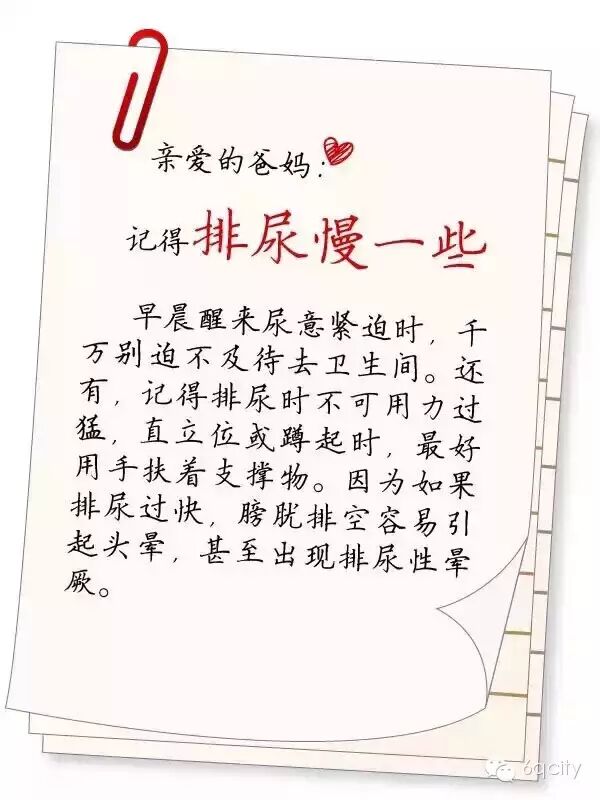 亲爱的爸妈：
记得排尿慢一些
早晨醒来尿意紧迫时，千
万别迫不及待去卫生间。还
有，记得排尿时不可用力过
猛，直立位或蹲起时，最好
用手扶着支撑物。因为如果
排尿过快，膀胱排空容易引
起头晕，甚至出现排尿性晕
厥。
6qcity